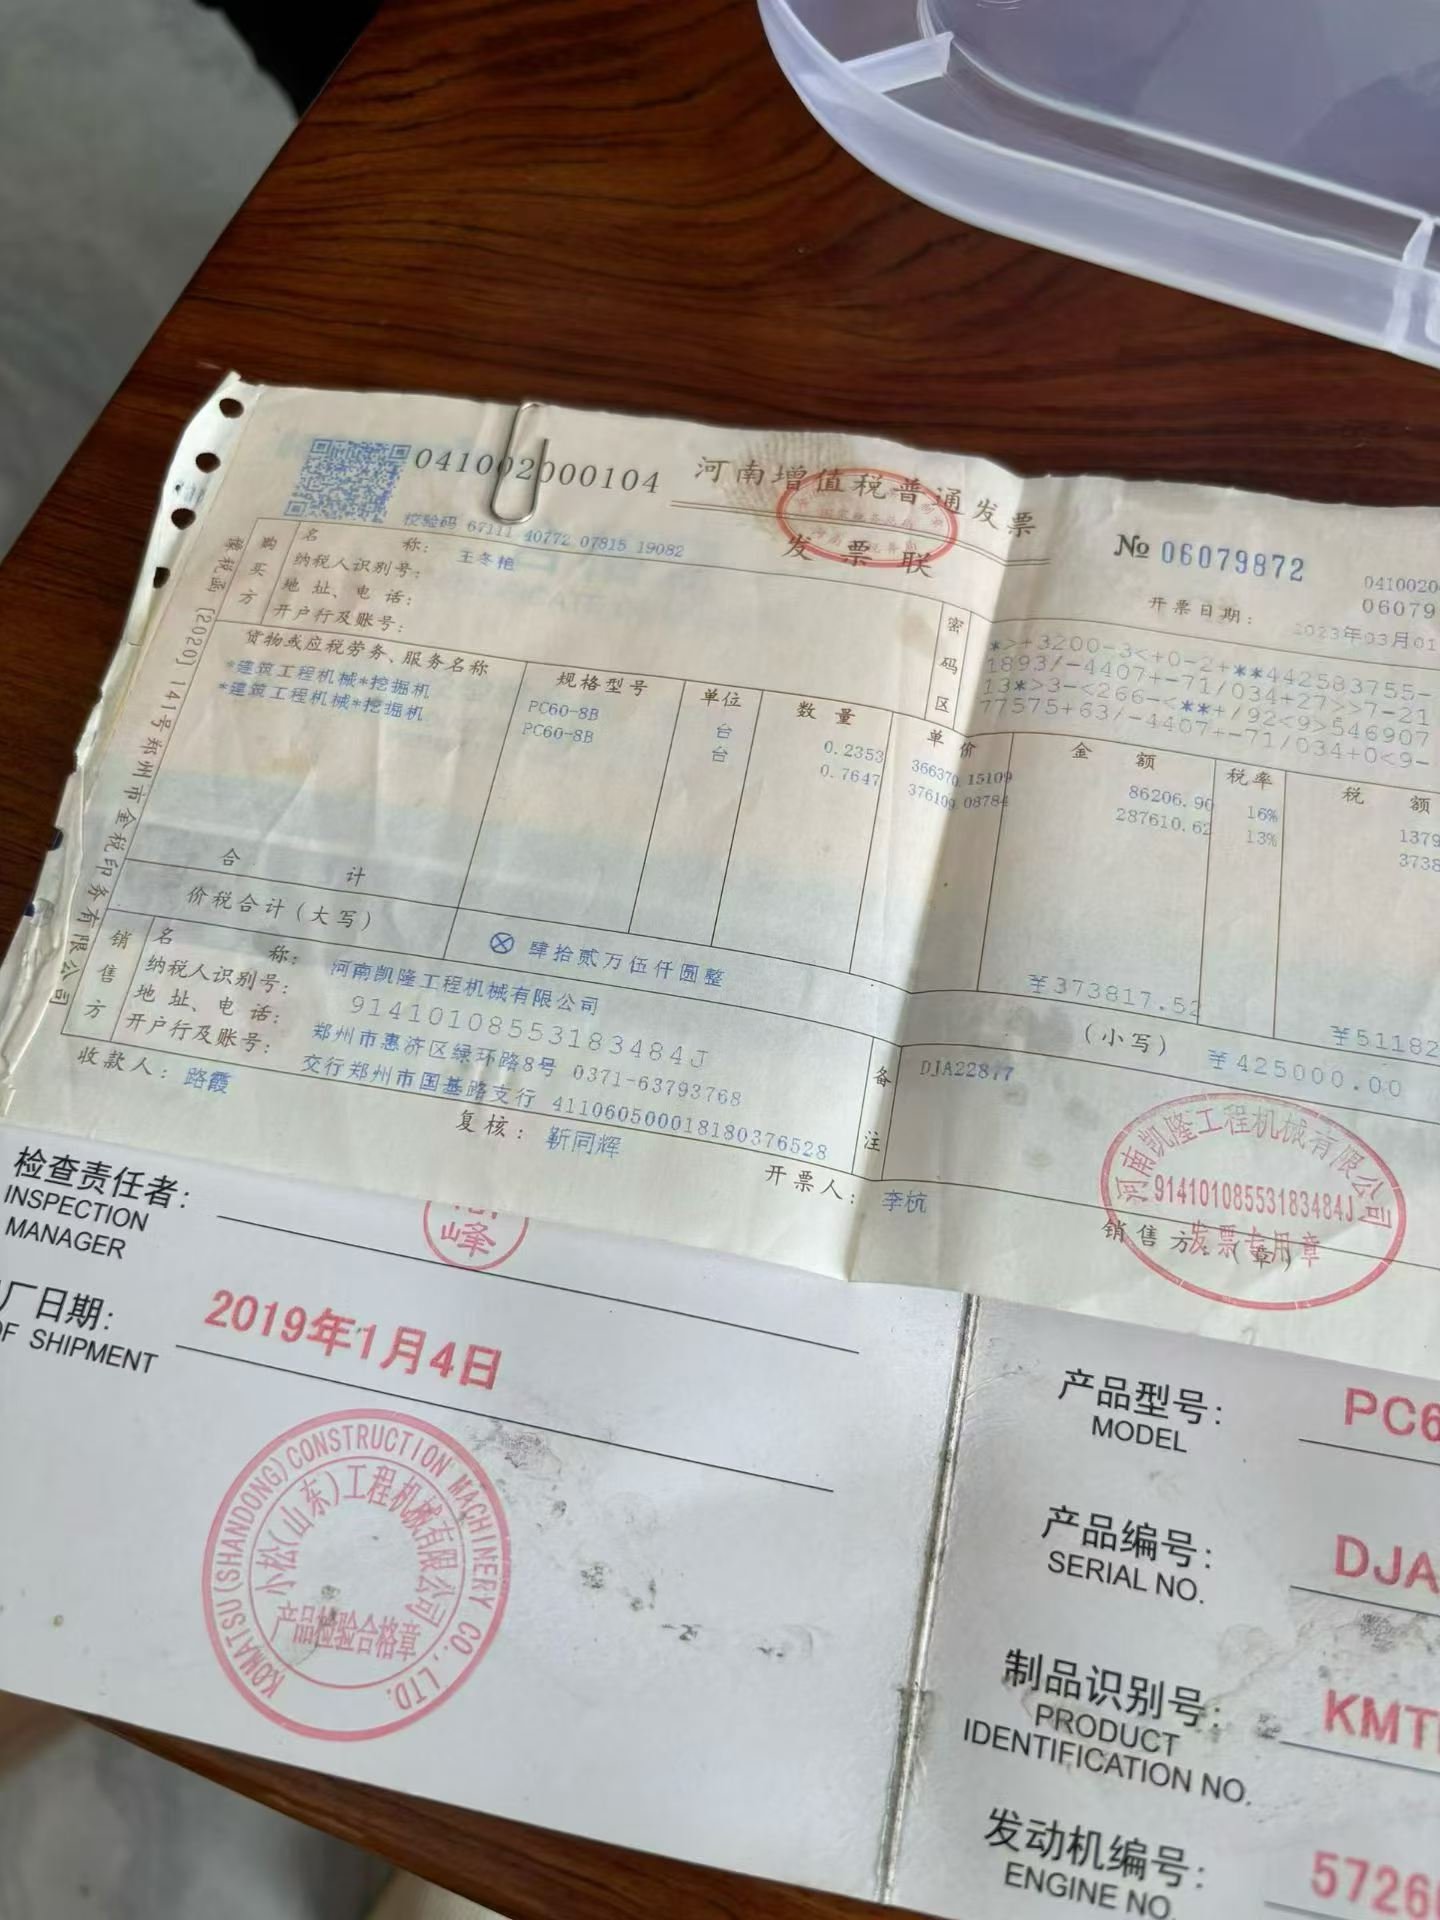 041002000104
河南增值税普通发票
发票联
№ 06079872
校验码 67111 40772 07815 19082
开票日期: 2023年03月01
购买方
名称: 王冬艳
纳税人识别号:
地址、电话:
开户行及账号:
密码区
*>+3200-3<+0-2+**442583755-
1893/-4407+-71/034+27>>7-21
13*>3-<266-<**+/92<9>546907
77575+63/-4407+-71/034+0<9-
货物或应税劳务、服务名称 规格型号 单位 数量 单价 金额 税率 税额
*建筑工程机械*挖掘机 PC60-8B 台 0.2353 366370.15109 86206.90 16% 1379
*建筑工程机械*挖掘机 PC60-8B 台 0.7647 376109.08784 287610.62 13% 3738
合计 ¥373817.52 ¥51182
价税合计(大写) ⊗ 肆拾贰万伍仟圆整 (小写) ¥425000.00
销售方
名称: 河南凯隆工程机械有限公司
纳税人识别号: 91410108553183484J
地址、电话: 郑州市惠济区绿环路8号 0371-63793768
开户行及账号: 交行郑州市国基路支行 411060500018180376528
备注
DJA22877
收款人: 路霞
复核: 靳同辉
开票人: 李杭
销售方:(章)
河南凯隆工程机械有限公司
91410108553183484J
发票专用章
〔2020〕141号郑州市金税印务有限公司
检查责任者:
INSPECTION
MANAGER
峰
厂日期:
OF SHIPMENT
2019年1月4日
KOMATSU (SHANDONG) CONSTRUCTION MACHINERY CO., LTD.
小松(山东)工程机械有限公司
产品检验合格章
产品型号: PC6
MODEL
产品编号: DJA
SERIAL NO.
制品识别号: KMT
PRODUCT
IDENTIFICATION NO.
发动机编号: 5726
ENGINE NO.